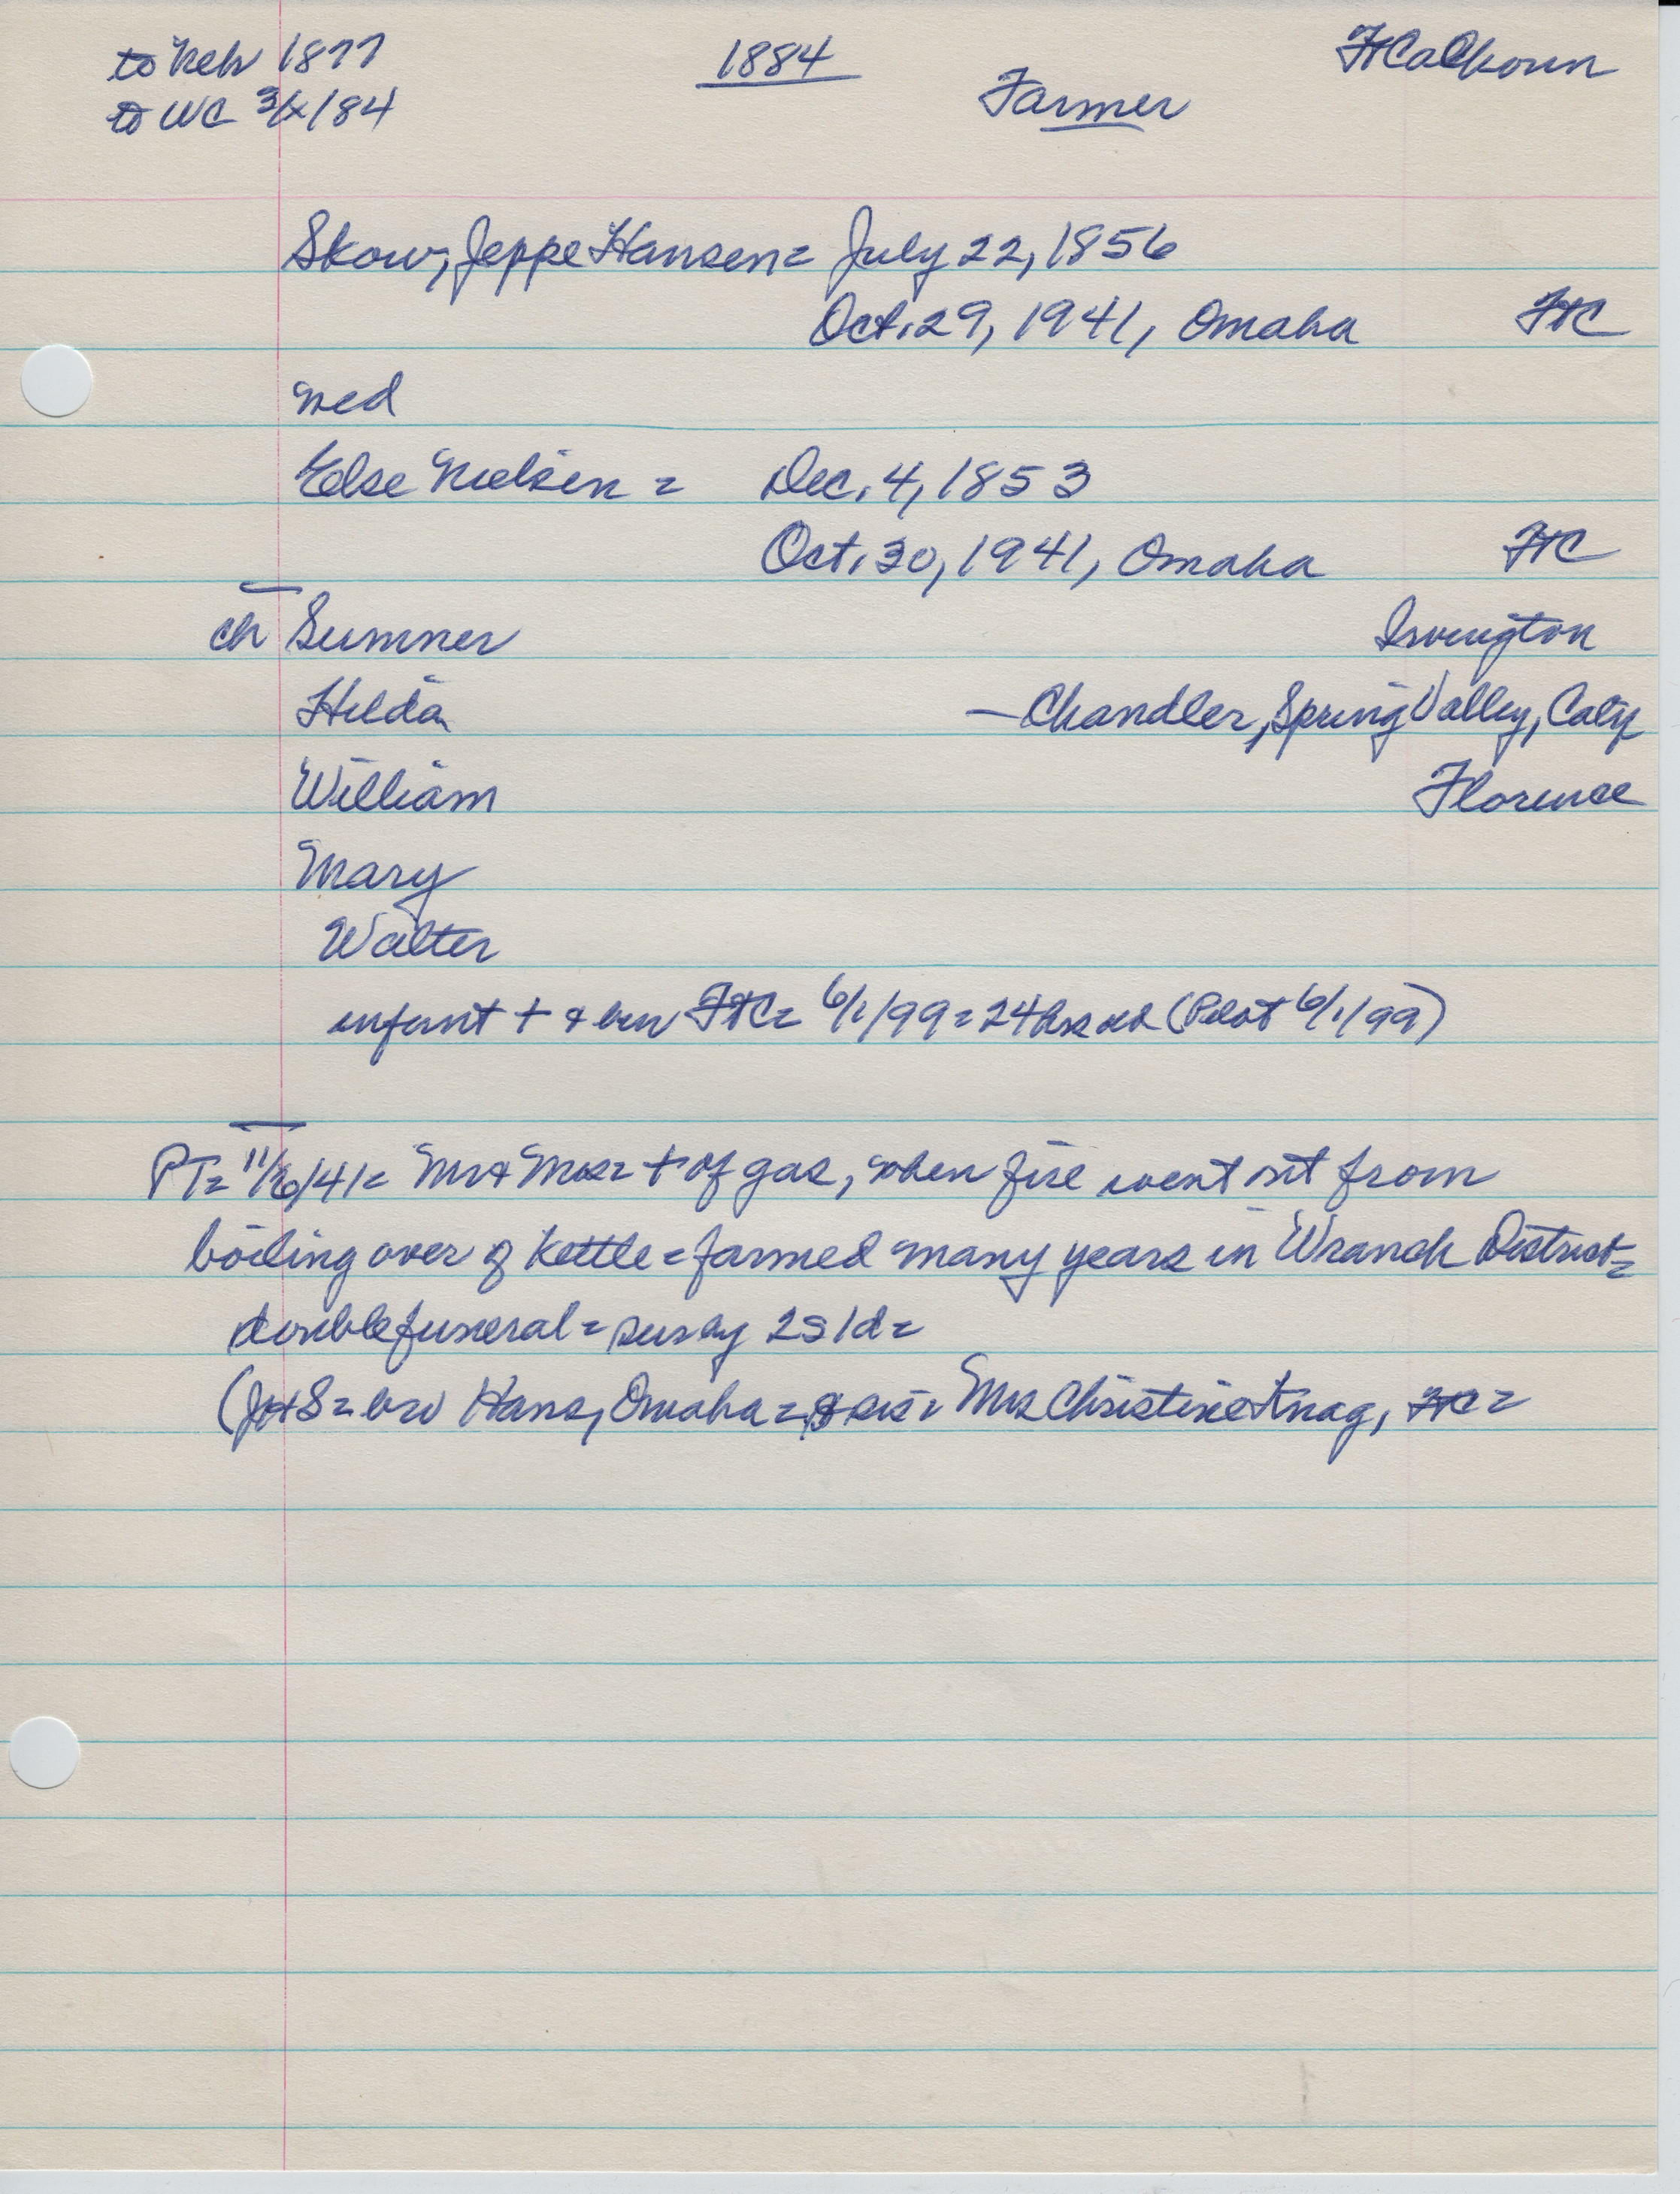 to Neb 1877
1884
Ft Calhoun
to WC 3/x/84
Farmer
Skow, Jeppe Hansen = July 22, 1856
Oct. 29, 1941, Omaha FtC
med
Else Nielsen = Dec. 4, 1853
Oct. 30, 1941, Omaha FtC
ch Sumner Irvington
Hilda — Chandler, Spring Valley, Calif
William Florence
Mary
Walter
infant + & bur FtC = 6/1/99 = 24 hrs old (Pilot 6/1/99)
PT = 11/6/41 = Mr & Mrs = + of gas, when fire went out from
boiling over of kettle = farmed many years in Wranch District =
double funeral = surv by 2s 1d =
(J H S = bro Hans, Omaha = sis = Mrs Christine Knag, FtC =